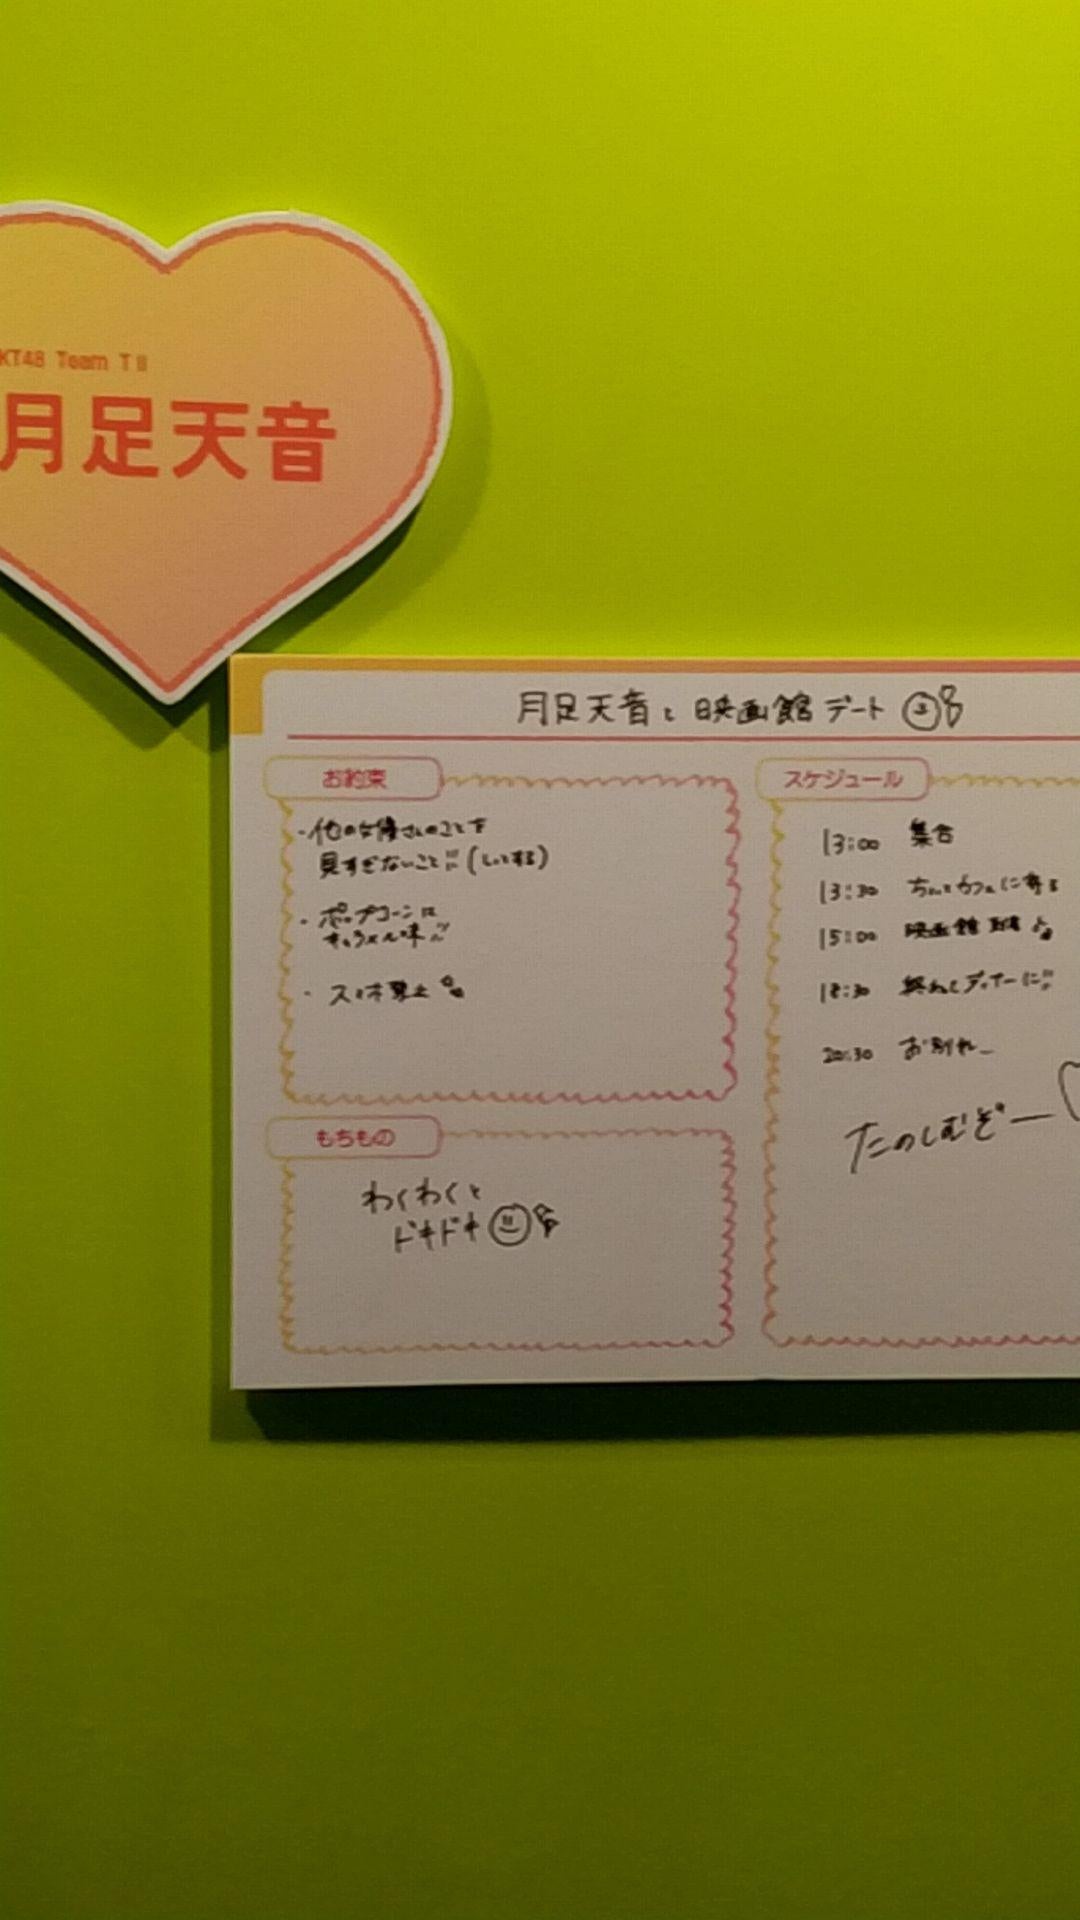 KT48 Team TII
月足天音
月足天音と映画館デート
お約束
・他の女優さんのことを
見すぎないこと!!! (しっとする)
・ポップコーンは
キャラメル味
・スマホ禁止
もちもの
わくわくと
ドキドキ
スケジュール
13:00 集合
13:30 ちょっとカフェに寄る
15:00 映画館 到着
18:30 終わってディナーに!!
20:30 お別れ_
たのしむぞー